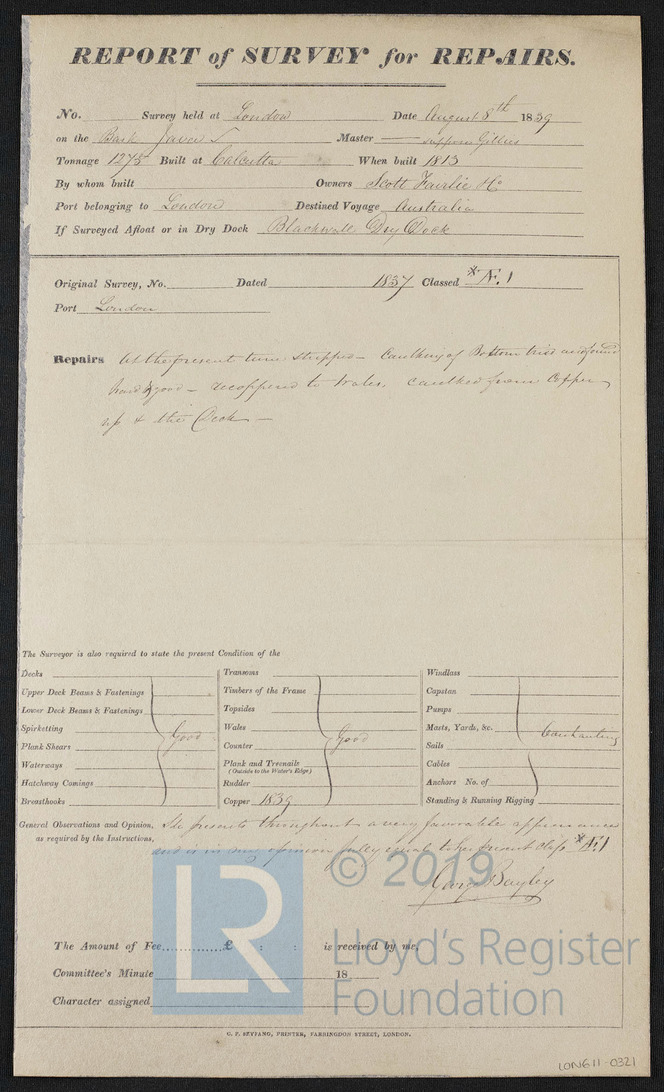 REPORT of SURVEY for REPAIRS.
No. Survey held at London Date August 8th 1839
on the Bark Java Master suppose Gillies
Tonnage 1275 Built at Calcutta When built 1813
By whom built Owners Scott Fairlie & Co
Port belonging to London Destined Voyage Australia
If Surveyed Afloat or in Dry Dock Blackwall Dry Dock
Original Survey, No. Dated 1837 Classed *Æ.1
Port London
Repairs At the present time stripped – Caulking of Bottom tried and found
hard & good – recoppered to Wales. caulked from Copper
up & the Deck –
The Surveyor is also required to state the present Condition of the
Decks
Upper Deck Beams & Fastenings
Lower Deck Beams & Fastenings
Spirketting
Plank Shears
Waterways
Hatchway Comings
Breasthooks
Good
Transoms
Timbers of the Frame
Topsides
Wales
Counter
Plank and Treenails
(Outside to the Water's Edge)
Rudder
Copper 1839
Good
Windlass
Capstan
Pumps
Masts, Yards, &c.
Sails
Cables
Anchors No. of
Standing & Running Rigging
Overhauling
General Observations and Opinion, She presents throughout a very favorable appearance
as required by the Instructions, and is in my opinion fully equal to her present class *Æ1
George Bayley
The Amount of Fee..............£ : : is received by me,
Committee's Minute 18
Character assigned
C. F. SEYFANG, PRINTER, FARRINGDON STREET, LONDON.
LON611-0321
© 2019
LR
Lloyd's Register
Foundation